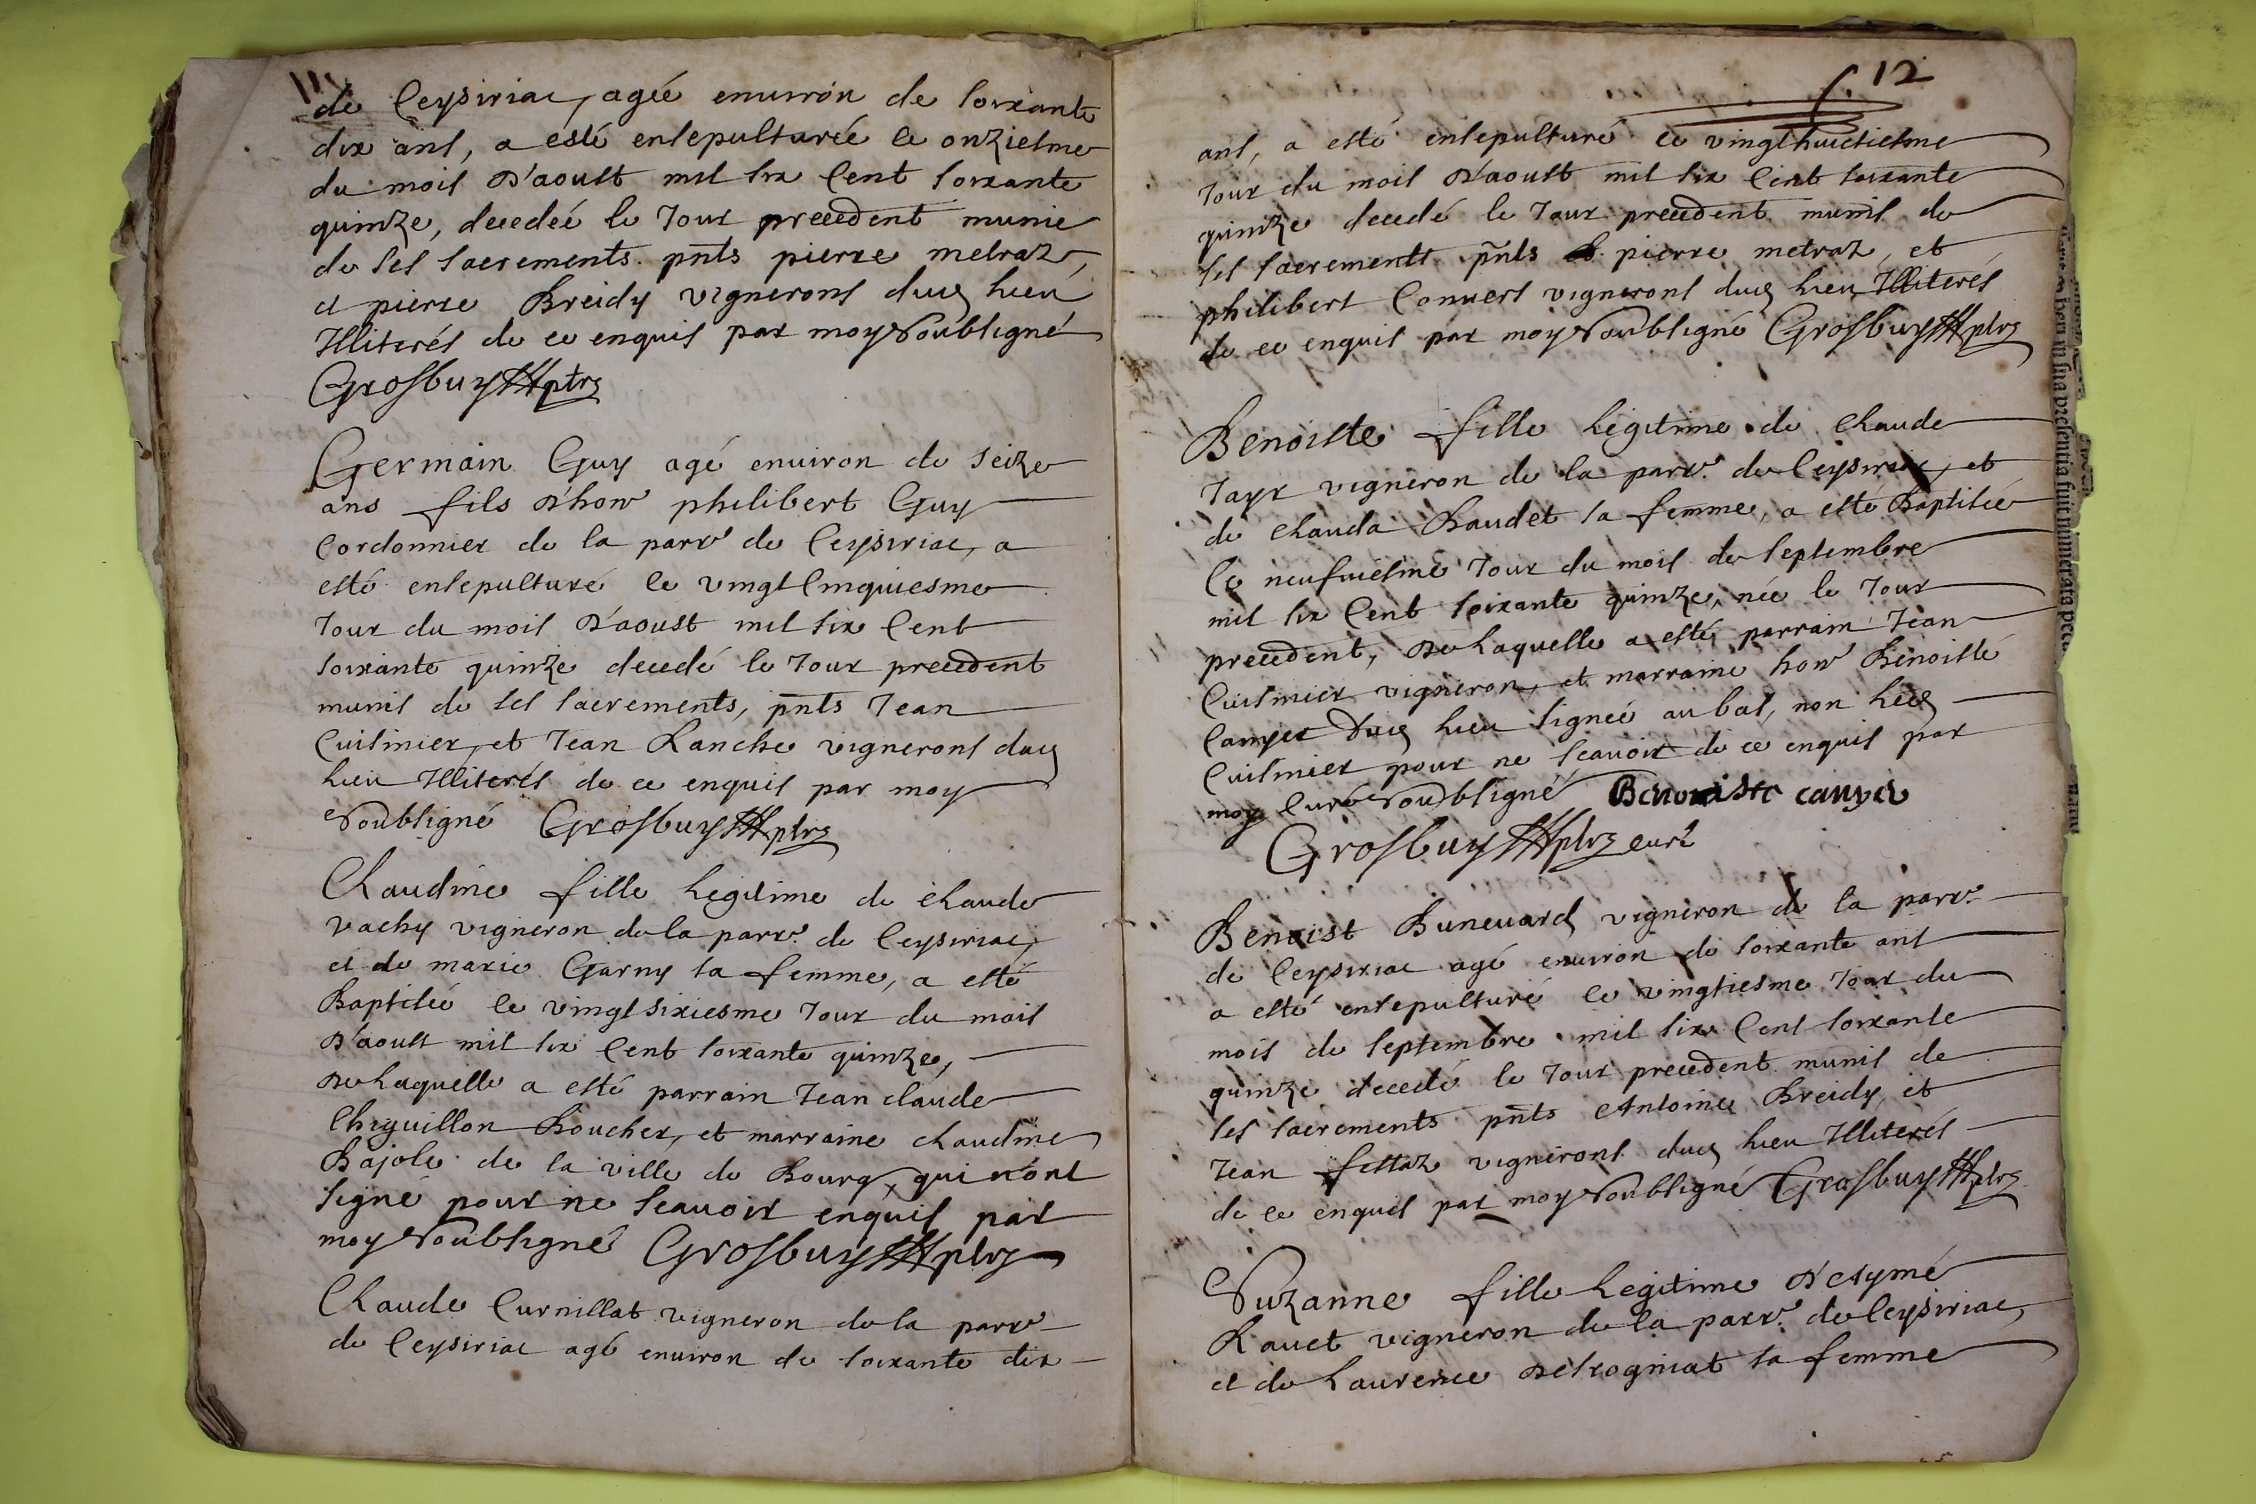 de Ceysiriac, agée enuiron de soixante
dix ans, a esté ensepulturée ce onziesme
du mois d'aoust mil six Cent soixante
quinze, decedée le Jour precedent munie
de ses sacrements. pnts pierre metraz,
et pierre Breidy vignerons dud lieu
Illiterés de ce enquis par moy soubsigné
Grosbuy ptre
Germain Guy agé enuiron de seize
ans fils d'hon philibert Guy
Cordonnier de la parr de Ceysiriac, a
esté ensepulturé ce vingt Cinquiesme
Jour du mois d'aoust mil six Cent
soixante quinze decedé le Jour precedent
munis de ses sacrements, pnts Jean
Cuisinier, et Jean Ranche vignerons dud
lieu Illiterés de ce enquis par moy
soubsigné Grosbuy ptre
Claudine fille legitime de Claude
vachy vigneron de la parr. de Ceysiriac,
et de marie Garny sa femme, a esté
Baptisée ce vingt sixiesme Jour du mois
d'aoust mil six Cent soixante quinze,
de laquelle a esté parrain Jean claude
Chiguillon Boucher, et marraine claudine
Bajole de la ville de Bourg, qui n'ont
signé pour ne scauoir enquis par
moy soubsigné Grosbuy ptre
Claude Curnillat vigneron de la parr
de Ceysiriac agé enuiron de soixante dix
f. 12
ans, a esté ensepulturé ce vingthuictiesme
Jour du mois d'aoust mil six Cent soixante
quinze decedé le Jour precedent munis de
ses sacrements pnts pierre metraz, et
philibert Conuers vignerons dud lieu Illiterés
de ce enquis par moy soubsigné Grosbuy ptre
Benoiste fille legitime de Claude
Jayr vigneron de la parr. de Ceysiriac, et
de Clauda Baudet sa femme, a esté Baptisée
Ce neufuiesme Jour du mois de septembre
mil six Cent soixante quinze, née le Jour
precedent, de laquelle a esté parrain Jean
Cuisinier vigneron, et marraine hon Benoiste
Canyer dud lieu signée au bas, non led
Cuisinier pour ne scauoir de ce enquis par
moy Curé soubsigné Benoiste canyer
Grosbuy ptre curé
Benoist Buneuard vigneron de la parr.
de Ceysiriac agé enuiron de soixante ans
a esté ensepulturé ce vingtiesme Jour du
mois de septembre mil six Cent soixante
quinze decedé le Jour precedent munis de
ses sacrements pnts Antoine Breidy, et
Jean fillaz vignerons dud lieu Illiterés
de ce enquis par moy soubsigné Grosbuy ptre
Suzanne fille legitime d'Aymé
Rauet vigneron de la parr. de Ceysiriac,
et de Laurence Detrogniat sa femme